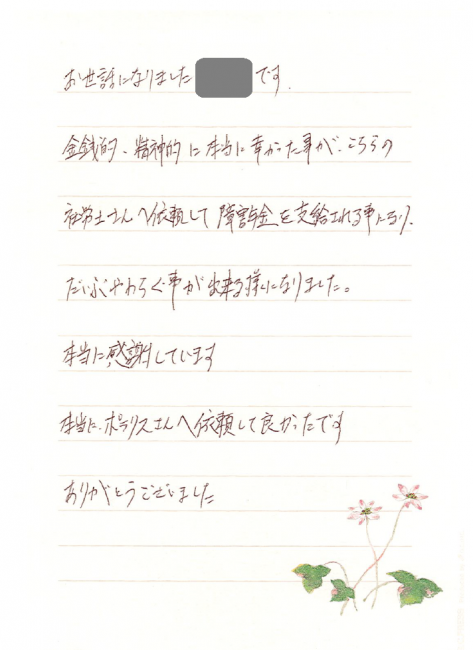 お世話になりました です.
金銭的、精神的に本当に辛かった事が、こちらの
社労士さんへ依頼して障害年金を支給される事により、
だいぶやわらぐ事が出来る様になりました。
本当に感謝しています
本当に、ポラリスさんへ依頼して良かったです
ありがとうございました